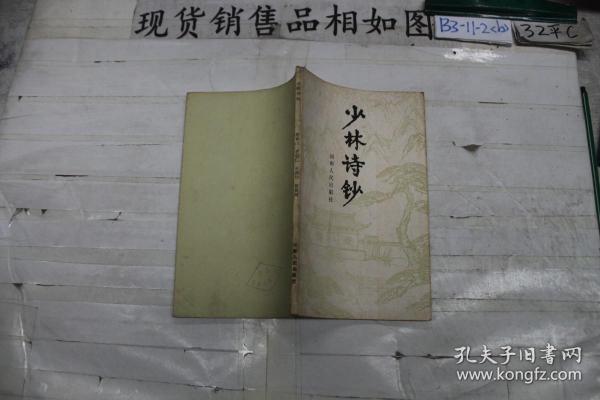 现货销售品相如图
B3-11-2<b>
32平C
少林诗钞
河南人民出版社
孔夫子旧书网
www.kongfz.com